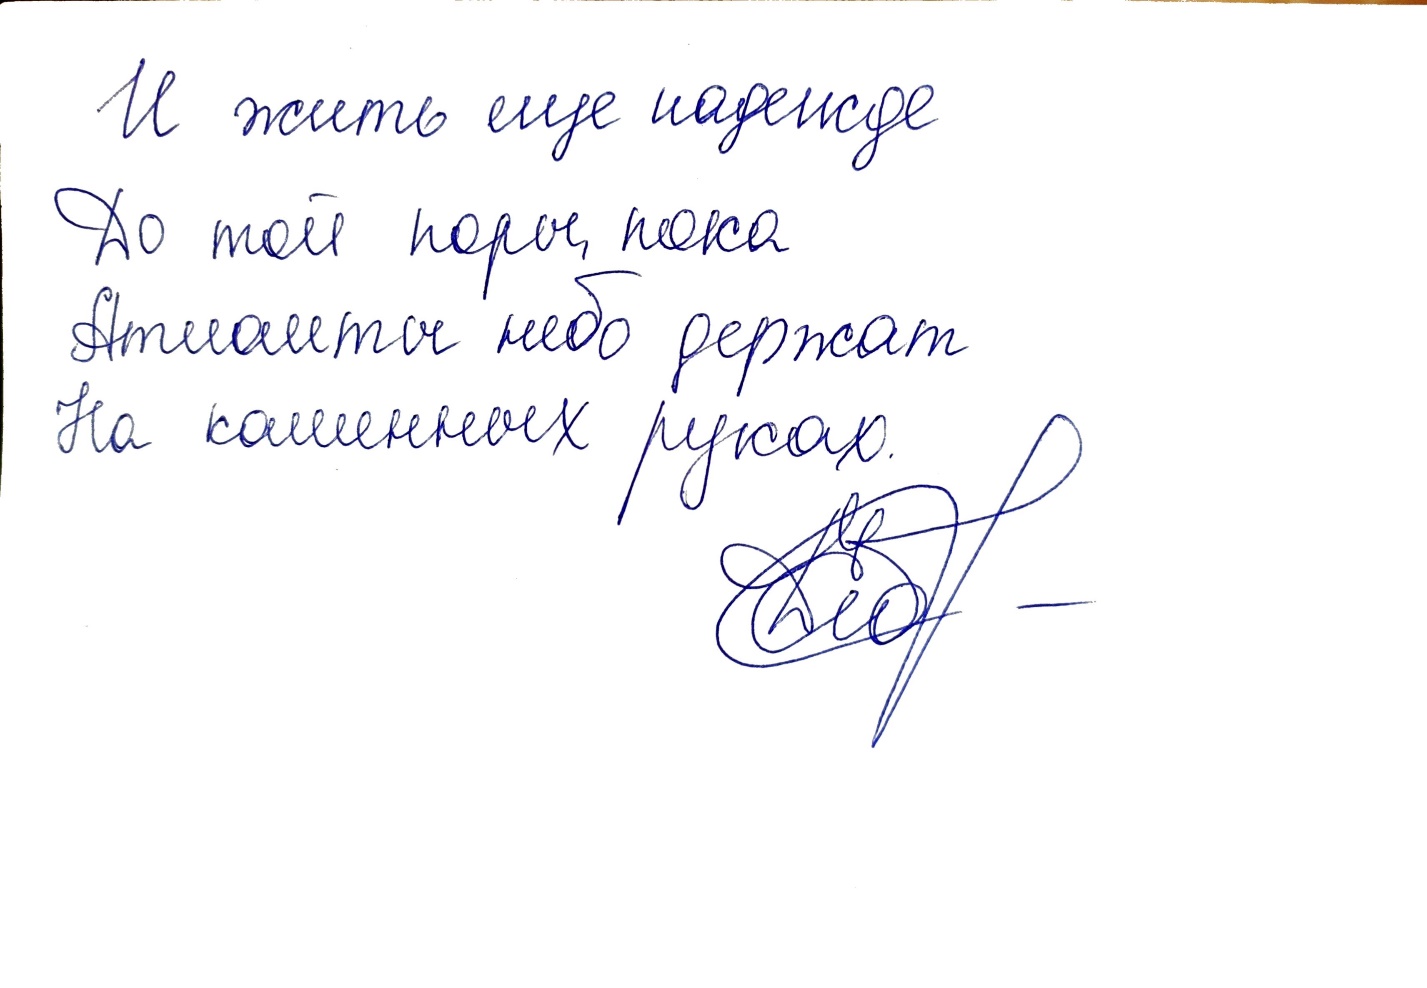 И жить еще надежде
До той поры, пока
Атланты небо держат
На каменных руках.